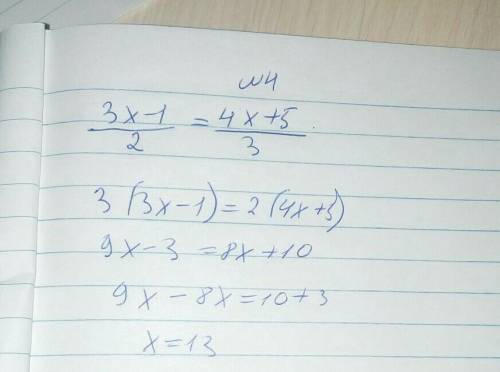 №4
3x-1/2 = 4x+5/3.
3(3x-1)=2(4x+5)
9x-3=8x+10
9x-8x=10+3
x=13